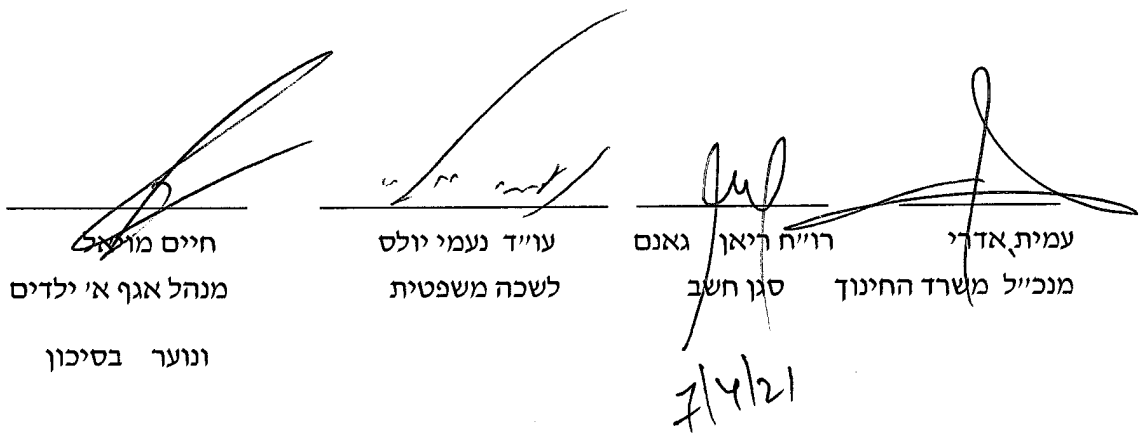 עמית אדרי
מנכ״ל משרד החינוך
רו״ח ריאן גאנם
סגן חשב
7/4/21
עו״ד נעמי יולס
לשכה משפטית
חיים מויאל
מנהל אגף א׳ ילדים
ונוער בסיכון